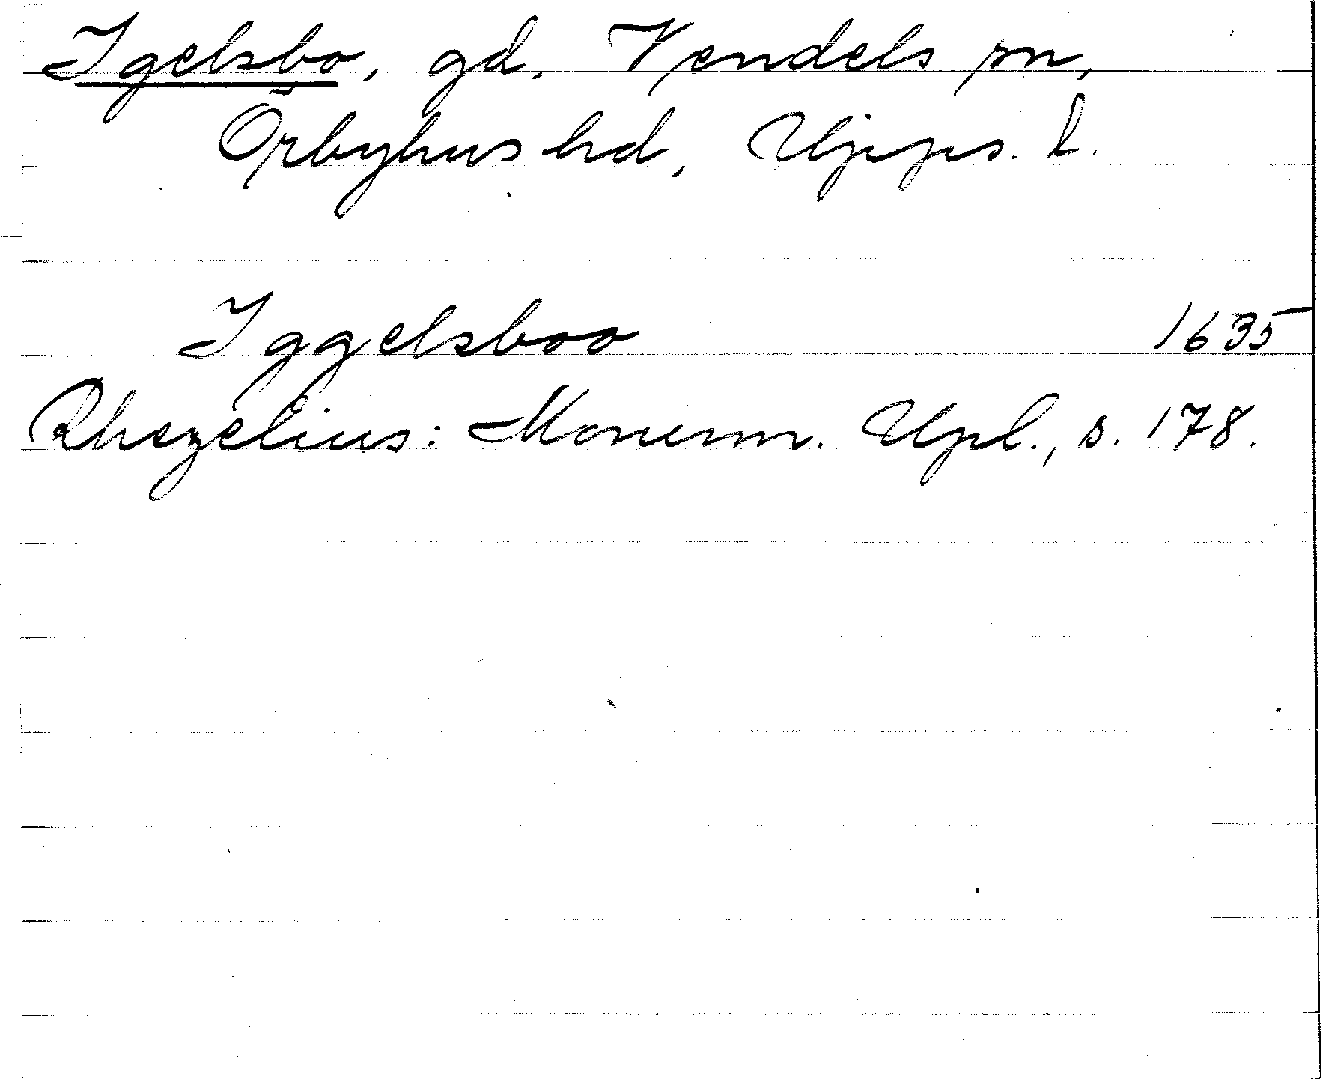 Igelsbo, gd, Vendels sn,
Örbyhus hd, Upps. l.
Iggelsboo 1635
Rhezelius: Monum. Upl., s. 178.